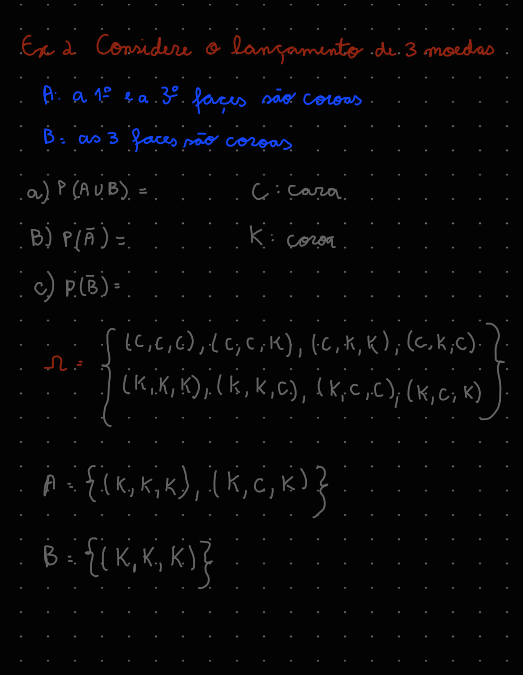 Ex 2 Considere o lançamento de 3 moedas
A: a 1º e a 3º faces são coroas
B: as 3 faces são coroas
a) P(A∪B) = C: cara
B) P(Ā) = K: coroa
c) P(B̄) =
Ω = { (C,C,C), (C,C,K), (C,K,K), (C,K,C)
(K,K,K), (K,K,C), (K,C,C), (K,C,K) }
A = {(K,K,K), (K,C,K)}
B = {(K,K,K)}